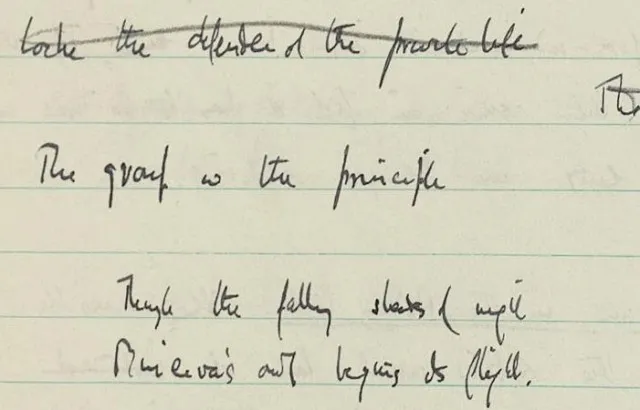 Locke the defender of the private life
The
The group is the principle
Through the falling shades of night
Minerva's owl begins its flight.